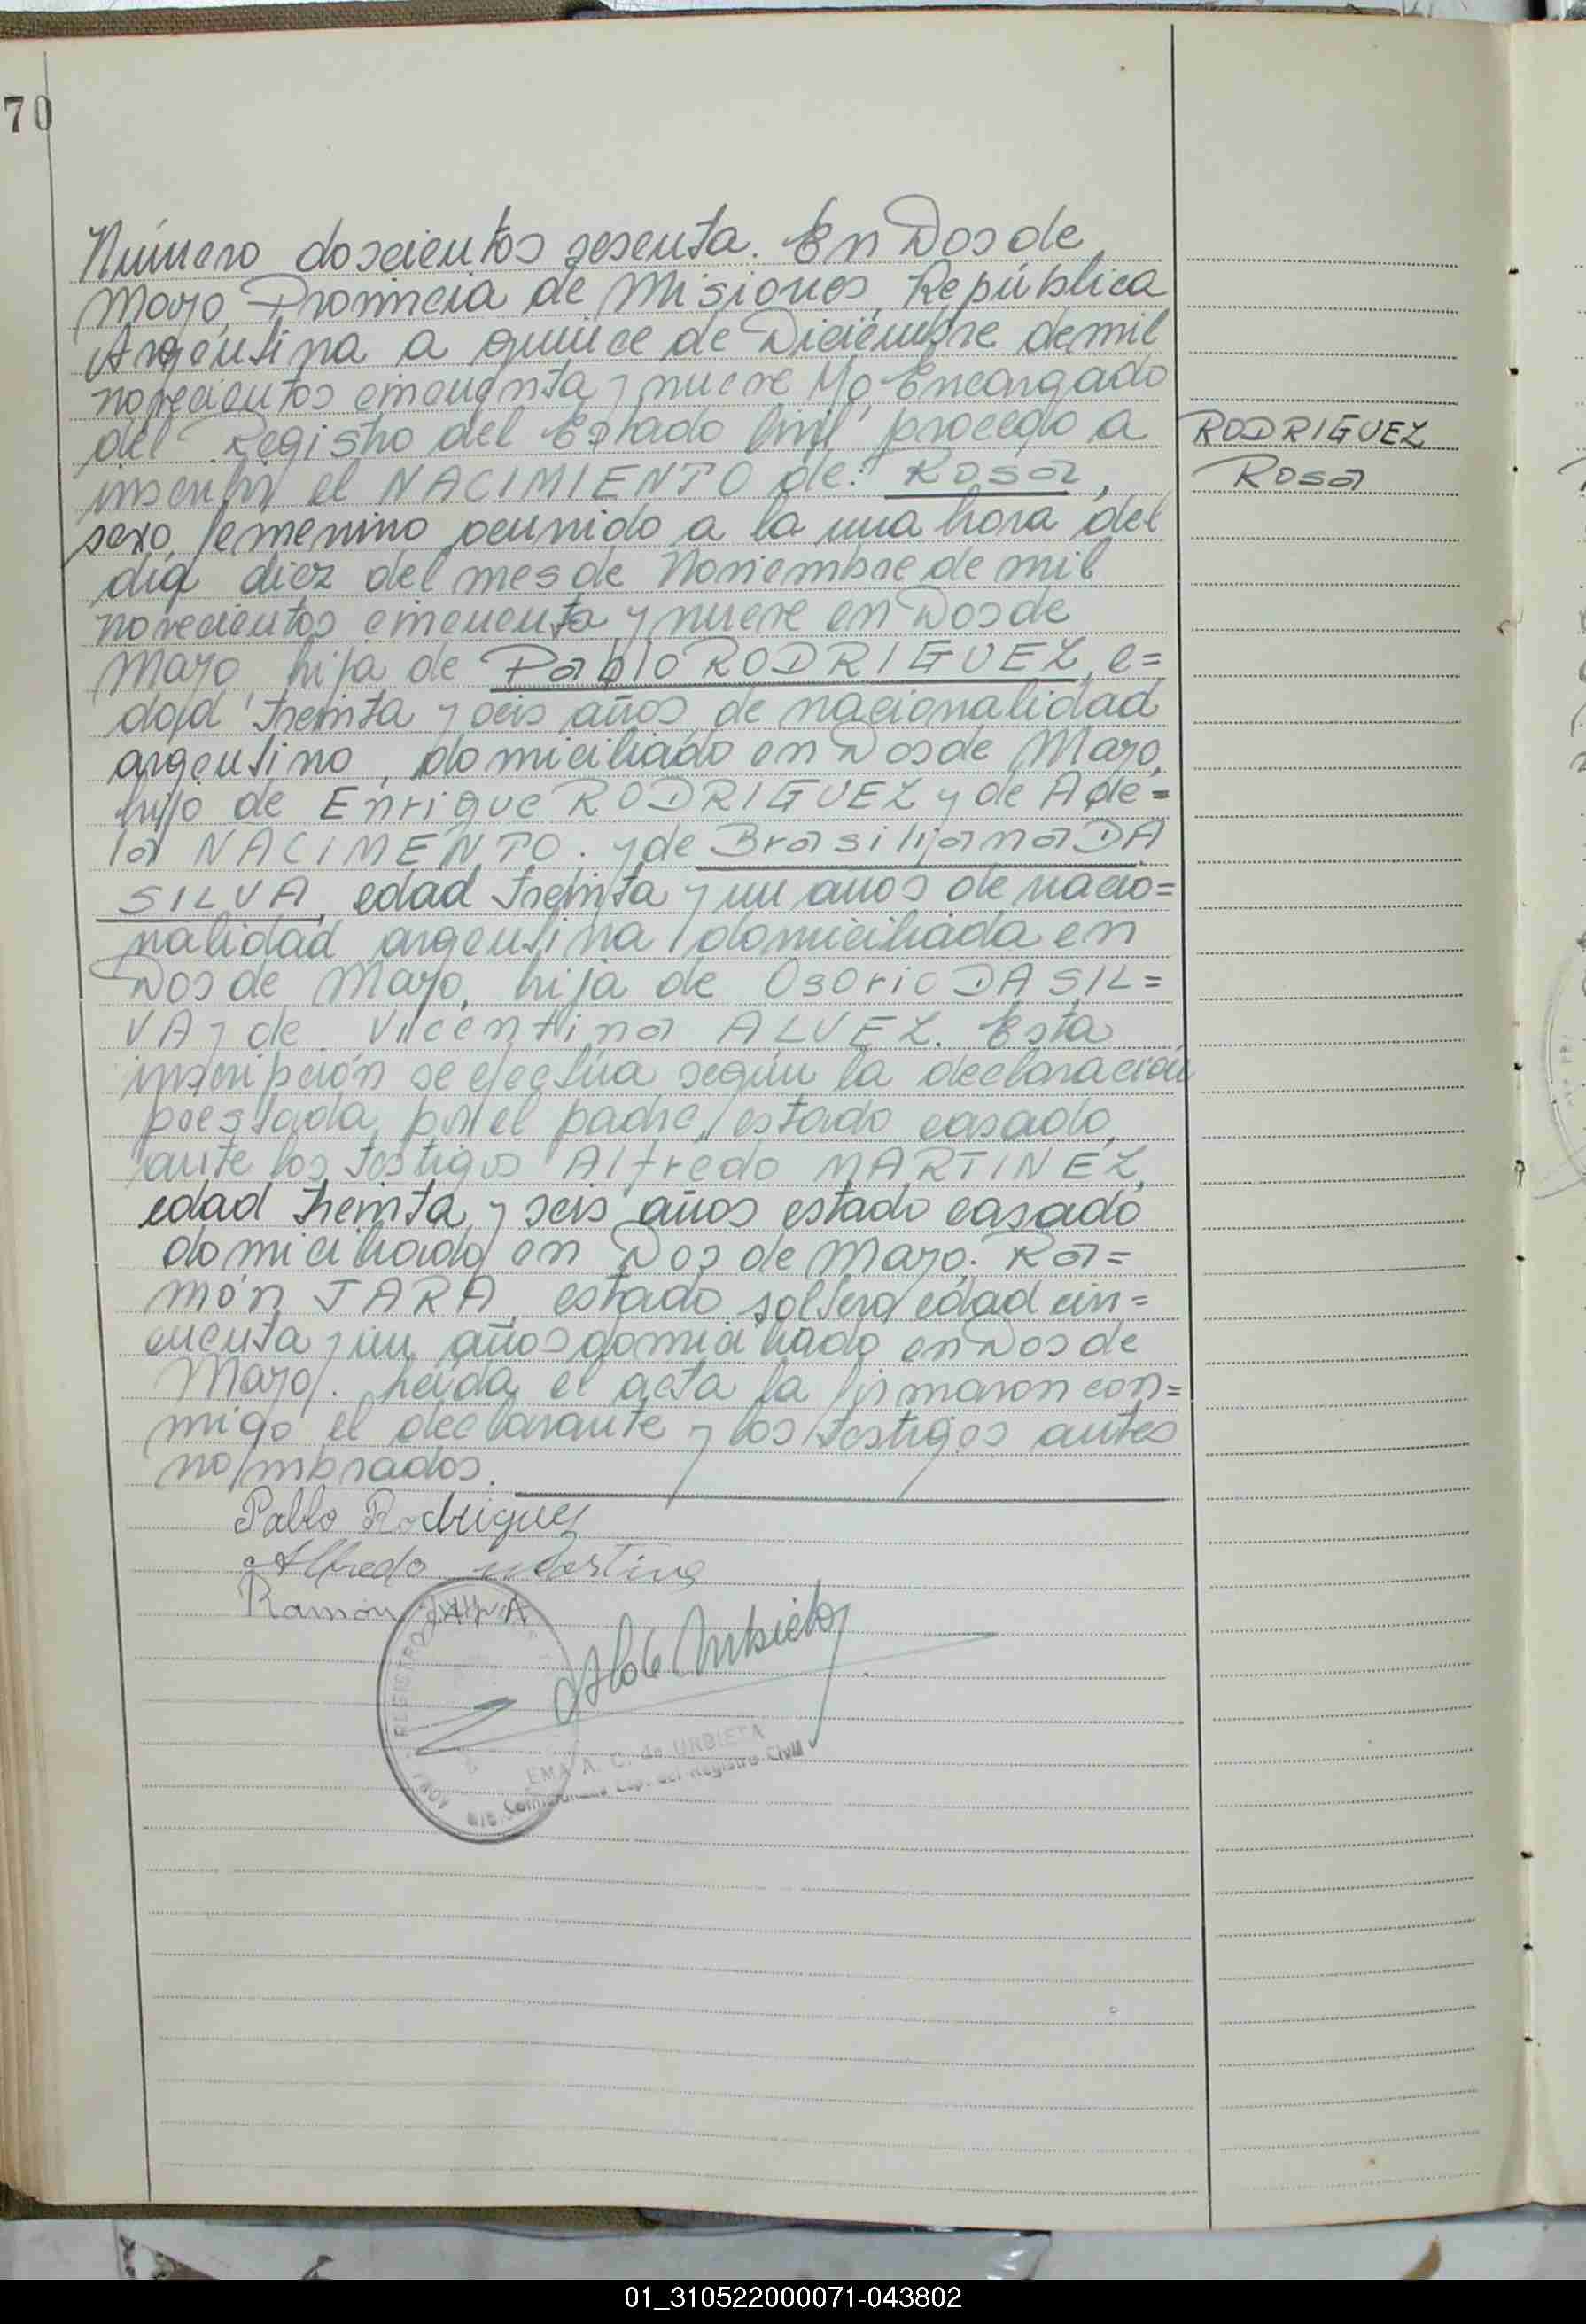 70
Número doscientos sesenta. En Dos de
Mayo, Provincia de Misiones, República
Argentina a quince de Diciembre de mil
novecientos cincuenta y nueve Yo Encargado
del Registro del Estado Civil, procedo a
inscribir el NACIMIENTO de: Rosa,
sexo femenino ocurrido a la una hora del
día diez del mes de Noviembre de mil
novecientos cincuenta y nueve en Dos de
Mayo hija de Pablo RODRIGUEZ, e=
dad treinta y seis años de nacionalidad
argentino, domiciliado en Dos de Mayo,
hijo de Enrique RODRIGUEZ y de Ade=
la NACIMENTO. y de Brasilijana DA
SILVA, edad treinta y un años de nacio=
nalidad argentina domiciliada en
Dos de Mayo, hija de Osorio DA SIL=
VA y de Vicentina ALVEZ. Esta
inscripción se efectúa según la declaración
prestada por el padre, estado casado,
ante los testigos Alfredo MARTINEZ,
edad treinta y seis años estado casado
domiciliado en Dos de Mayo. Ra=
món JARA estado soltero edad cin=
cuenta y un años domiciliado en Dos de
Mayo. Leída el acta la firmaron con=
migo el declarante y los testigos antes
nombrados.
RODRIGUEZ
Rosa
Pablo Rodriguez
Alfredo Martinez
Ramón JARA
REGISTRO
EMA A. C. de URBIETA
del Registro Civil
01_310522000071-043802